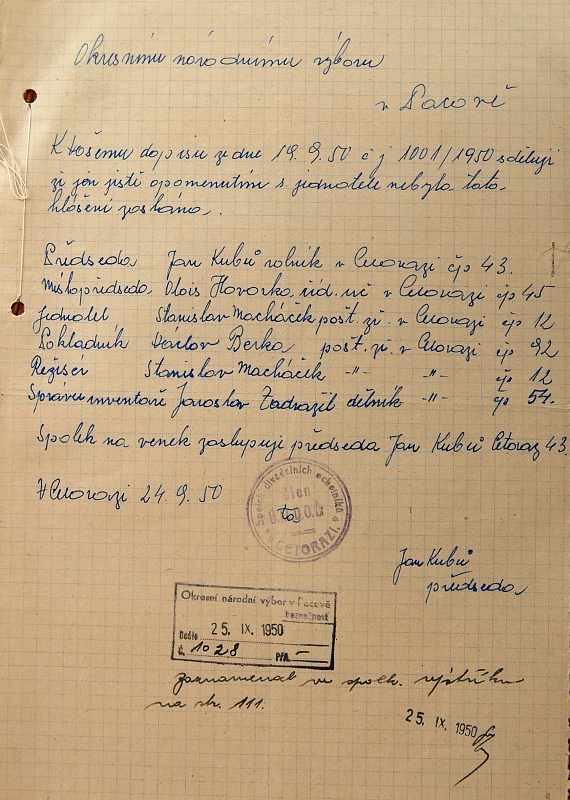 Okresnímu národnímu výboru
v Pacově
K Vašemu dopisu ze dne 19. 9. 50 č j 1001/1950 sděluji
že jen jistě opomenutím s. jednatele nebyla tato
hlášení zaslána.
Předseda Jan Kubů rolník v Cetorazi čp 43.
Místopředseda. Alois Havorka, říd. uč v Cetorazi čp 45
Jednatel Stanislav Macháček pošt. zř. v Cetorazi čp 12
Pokladník Václav Berka pošt. zř. v Cetorazi čp 92
Režisér Stanislav Macháček -"- -"- čp 12
Správce inventáře Jaroslav Zadražil dělník -"- čp 54.
Spolek na venek zastupuje předseda Jan Kubů Cetoraz 43.
V Cetorazi 24. 9. 50 za
Spolek divadelních ochotníků
člen
Ú.M.D.O.Č.
v CETORAZI.
Jan Kubů
předseda
Okresní národní výbor v Pacově
bezpečnost
Došlo 25. IX. 1950
č. 1028 Příl. —
zaznamenal ve spolk. rejstříku
na str. 111.
25. IX. 1950